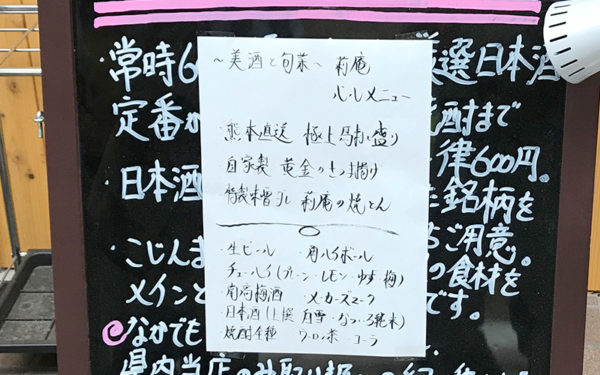 ~美酒と旬菜~ 莉庵
バルメニュー
・熊本直送 極上馬刺し盛り
自家製 黄金のさつま揚げ
莉庵の焼とん
・生ビール ・角ハイボール
チューハイ(プレーン・レモン・ゆず・梅)
・南高梅酒 ・メーカーズマーク
・日本酒(上撰 白雪・
・焼酎各種 ウーロン茶 コーラ
常時6
選日本酒
定番か
酎まで
一律600円。
日本酒
銘柄を
ご用意。
・こじんま
の食材を
メインと
です。
なかでも
県内当店の